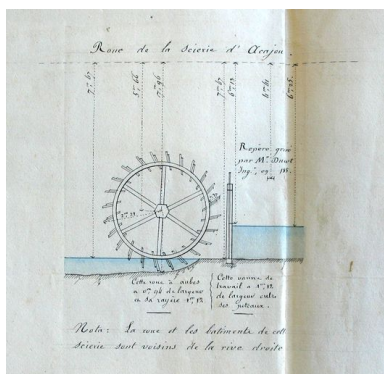 Roue de la Scierie d'Acajou.
7m,67
5m,66
7m,67
6m,12
Repère gravé
par Mr
Cette roue à aubes
a 0m,96 de largeur
et sa rayère 1m,12
Cette vanne de
travail a 1m,12
de largeur entre
ses poteaux.
Nota: La roue et les batiments de cette
scierie sont voisins de la rive droite